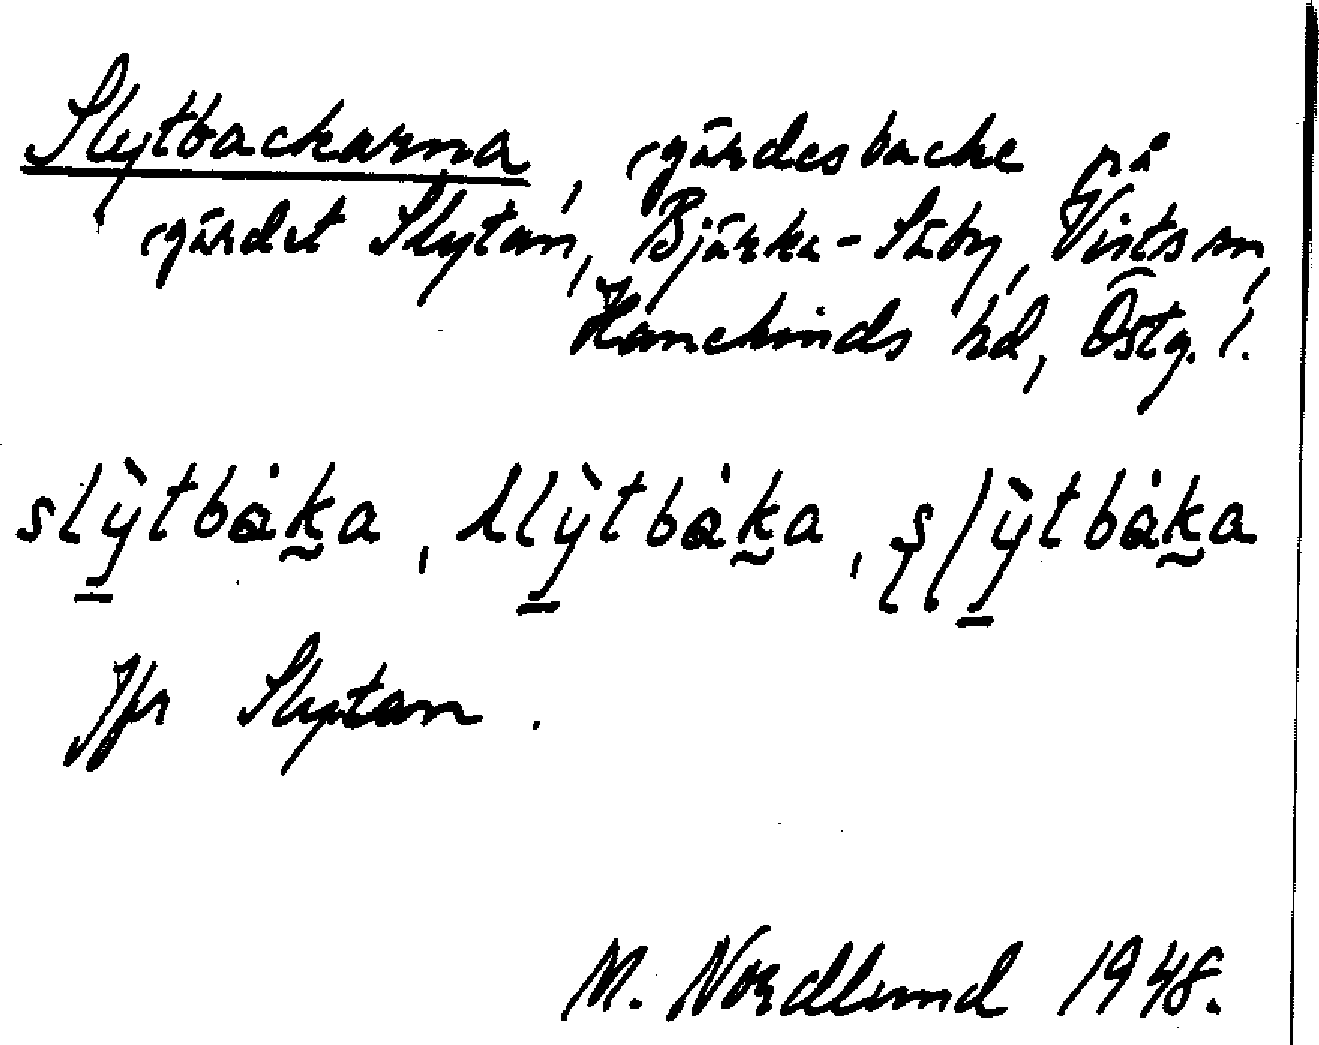 Slytbackarna, gärdesbacke på
gärdet Slytan, Bjärka-Säby, Vists sn,
Hanekinds hd, Östg. l.
slỳtbáka, llỳtbáka, ʂɭỳtbáka
Jfr Slytan.
M. Nordlund 1948.